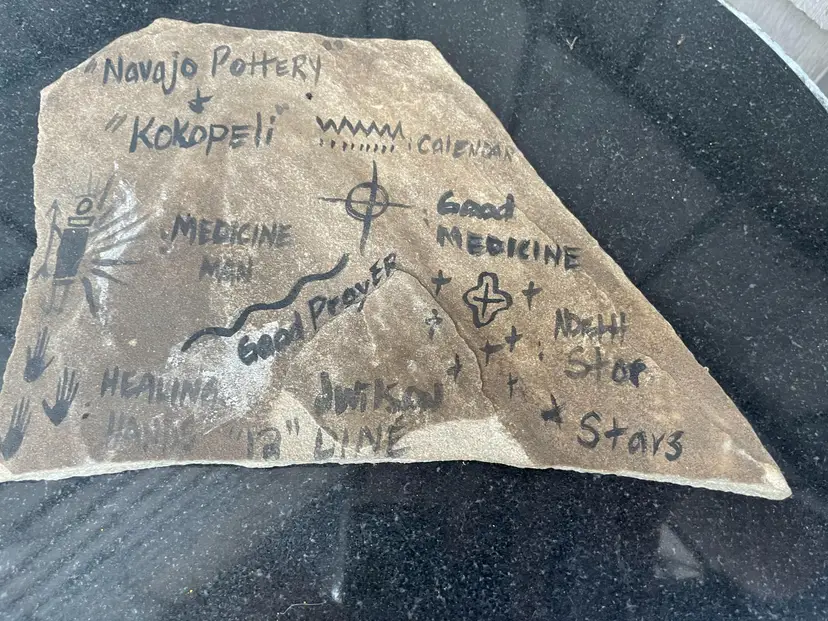 "Navajo Pottery"
&
"Kokopeli"
: CALENDAR
: Good
MEDICINE
: MEDICINE
MAN
Good PrayER
: NORTH
Star
& Stars
: HEALING
HANDS
JWilson
"12" DINÉ